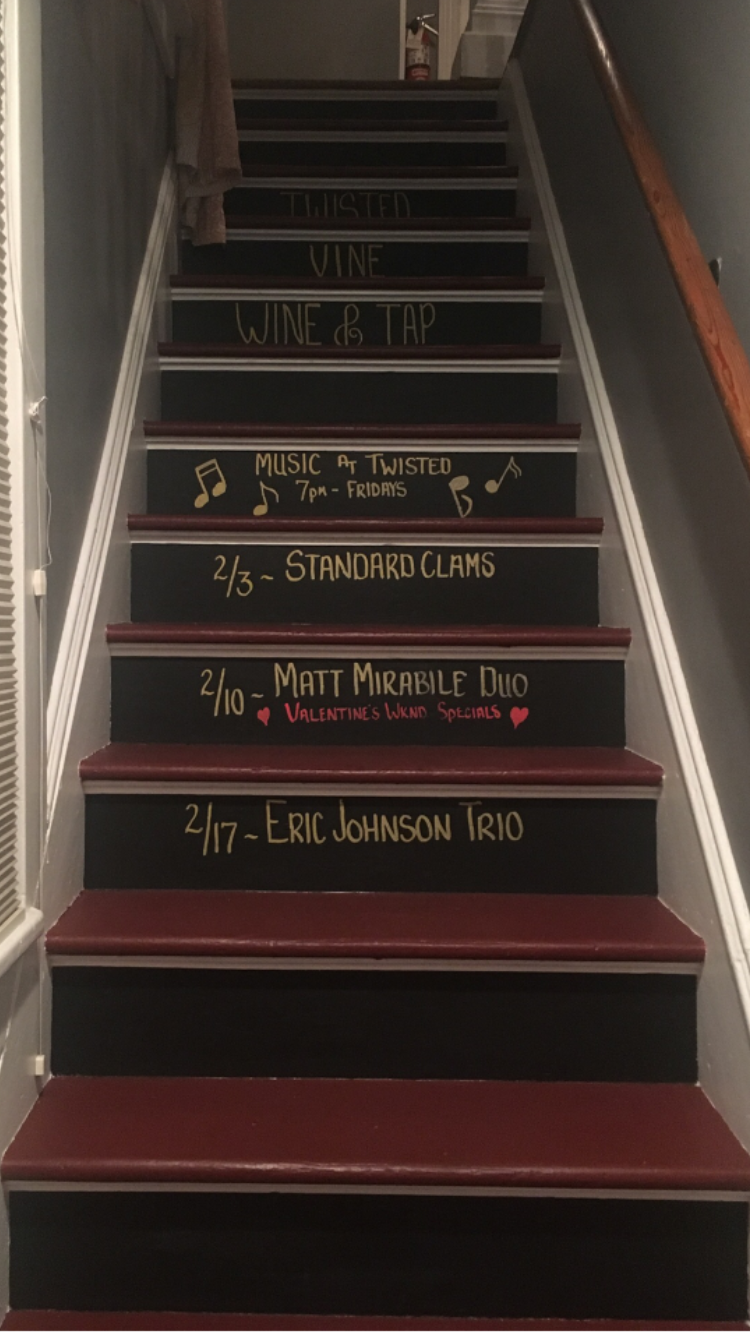 TWISTED
VINE
WINE & TAP
MUSIC AT TWISTED
7PM - FRIDAYS
2/3 ~ STANDARD CLAMS
2/10 ~ MATT MIRABILE DUO
VALENTINE'S WKND SPECIALS
2/17 ~ ERIC JOHNSON TRIO